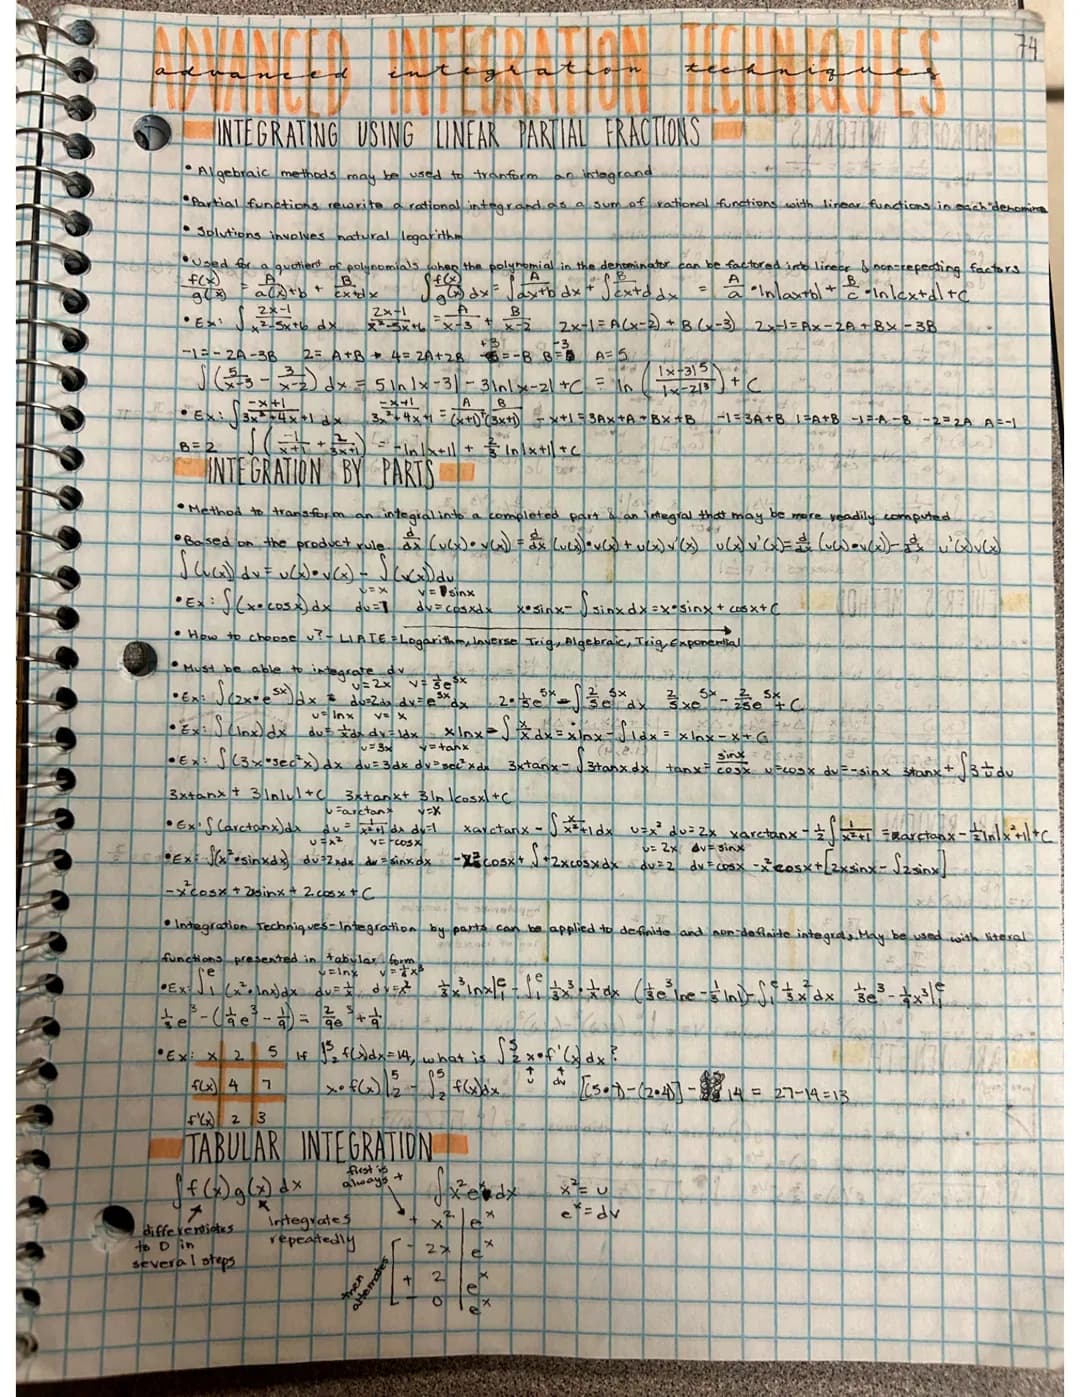 74
ADVANCED INTEGRATION TECHNIQUES
advanced integration techniques
INTEGRATING USING LINEAR PARTIAL FRACTIONS
• Algebraic methods may be used to tranform an integrand
• Partial functions rewrite a rational integrand as a sum of rational functions with linear functions in each denomina
• Solutions involves natural logarithm
• Used for a quotient of polynomials when the polynomial in the denominator can be factored into linear & non-repeating factors
f(x)/g(x) = A/a(x)+b + B/cx+dx ∫f(x)/g(x) dx = ∫A/ax+b dx + ∫B/cx+d dx = A/a • ln|ax+b| + B/c • ln|cx+d| + C
• Ex: ∫ 2x-1/x²-5x+6 dx 2x-1/x²-5x+6 = A/x-3 + B/x-2 2x-1 = A(x-2) + B(x-3) 2x-1 = Ax - 2A + Bx - 3B
-1 = -2A-3B 2 = A+B → 4 = 2A+2B +3 = -B B = -3 A = 5
∫(5/x-3 - 3/x-2) dx = 5 ln|x-3| - 3ln|x-2| + C = ln(|x-3|5/|x-2|3) + C
• Ex: ∫ -x+1/3x²+4x+1 dx -x+1/3x²+4x+1 = A/(x+1) + B/(3x+1) -x+1 = 3Ax+A+Bx+B -1=3A+B 1=A+B -1=-A-B -2=2A A=-1
B=2 ∫(-1/x+1 + 2/3x+1) = -ln|x+1| + 2/3 ln|x+1| + C
INTEGRATION BY PARTS
• Method to transform an integral into a completed part & an integral that may be more readily computed
• Based on the product rule d/dx (u(x)•v(x)) = d/dx (u(x))•v(x) + u(x)v'(x) u(x)v'(x) = d/dx (u(x)•v(x)) - d/dx u'(x)v(x)
∫(u(x)) dv = u(x)•v(x) - ∫(v(x)) du
u=x v=sinx
• Ex: ∫(x•cosx)dx du=1 dv=cosxdx x•sinx - ∫sinx dx = x•sinx + cosx + C
• How to choose u? - LIATE = Logarithm, Inverse Trig, Algebraic, Trig, Exponential
• Must be able to integrate dv
u=2x v=1/5e^5x
• Ex: ∫(2x•e^5x)dx du=2dx dv=e^5x dx 2•1/5e^5x - ∫2/5e^5x dx 2/5xe^5x - 2/25e^5x + C
u=lnx v=x
• Ex: ∫(lnx)dx du=1/x dx dv=1dx xlnx - ∫x/x dx = xlnx - ∫1dx = xlnx - x + C
u=3x v=tanx
• Ex: ∫(3x•sec²x) dx du=3dx dv=sec²xdx 3xtanx - ∫3tanxdx tanx = sinx/cosx u=cosx du=-sinx 3tanx + ∫3 1/u du
3xtanx + 3ln|u| + C 3xtanx + 3ln|cosx| + C
u=arctanx v=x
• Ex: ∫(arctanx)dx du = 1/x²+1 dx dv=1 xarctanx - ∫x/x²+1 dx u=x² du=2x xarctanx - 1/2∫1/x²+1 = xarctanx - 1/2 ln|x²+1| + C
u=x² v=-cosx u=2x dv=sinx
• Ex: ∫(x²•sinxdx) du=2xdx dv=sinxdx -x²cosx + ∫+2xcosxdx du=2 dv=cosx -x²cosx + [2xsinx - ∫2sinx]
-x²cosx + 2xsinx + 2cosx + C
• Integration Techniques - Integration by parts can be applied to definite and non-definite integrals. May be used with literal
functions presented in tabular form
u=lnx v=1/3x³
• Ex: ∫₁^e (x²•lnx)dx du=1/x dv=x² 1/3x³lnx|₁^e - ∫₁^e 1/3x³•1/x dx (1/3e³lne - 1/3ln1) - ∫₁^e 1/3x²dx 1/3e³ - 1/9x³|₁^e
1/3e³ - (1/9e³ - 1/9) = 2/9e³ + 1/9
• Ex: x 2 5 If ∫₂⁵ f(x)dx = 14, what is ∫₂⁵ x•f'(x)dx?
u dv
f(x) 4 7 x•f(x)|₂⁵ - ∫₂⁵ f(x)dx [(5•7)-(2•4)] - 14 = 27-14=13
f'(x) 2 3
TABULAR INTEGRATION
∫f(x)g(x)dx
differentiates to 0 in several steps
Integrates repeatedly
first is always +
∫x²e^x dx x²=u
e^x=dv
+ x² e^x
- 2x e^x
+ 2 e^x
- 0 e^x
then alternates